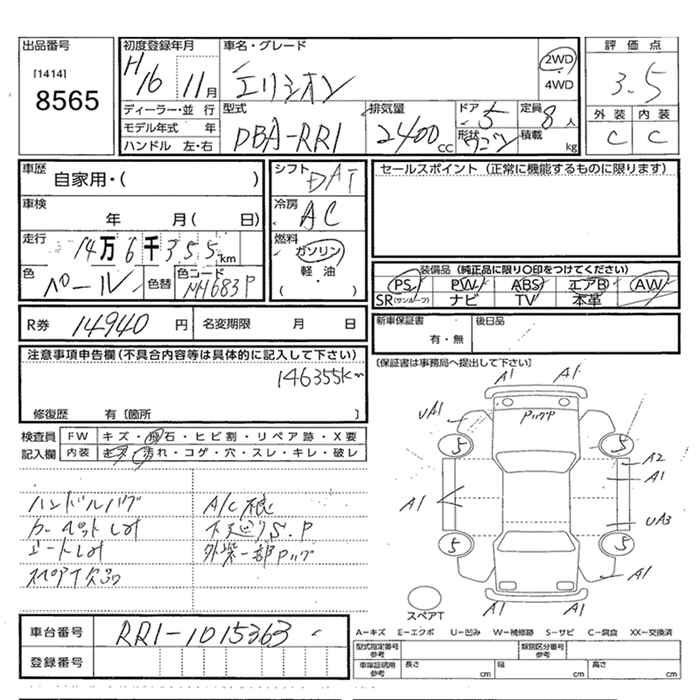 出品番号
[1414]
8565
初度登録年月
H16 11月
車名・グレード
エリシオン
2WD
4WD
評価点
3.5
外装 内装
C C
ディーラー・並 行
モデル年式 年
ハンドル 左・右
型式
DBA-RR1
排気量
2400 CC
ドア 5
形状 ワゴン
定員 8人
積載 kg
車歴
自家用・( )
車検
年 月( 日)
走行
14万6千355km
色
パール
色替
色コード
NH683P
シフト
DAT
冷房
AC
燃料
ガソリン
軽・油
( )
セールスポイント (正常に機能するものに限ります)
装備品 (純正品に限り〇印をつけてください)
PS PW ABS エアB AW
SR(サンルーフ) ナビ TV 本革
R券 14940 円
名変期限 月 日
新車保証書
有・無
後日品
(保証書は事務局へ提出して下さい)
注意事項申告欄(不具合内容等は具体的に記入して下さい)
146355km
修復歴 有〔箇所 〕
検査員
記入欄
FW キズ・飛石・ヒビ割・リペア跡・X要
内装 キズ・汚れ・コゲ・穴・スレ・キレ・破レ
ハンドル
A/C
シートシミ
S.P
外装一部Pップ
A1 A1
UA1
PップP
5 5
A2
A1
A1
UA3
5 5
A1
A1 A1
スペアT
車台番号 RR1-1015363
登録番号
A-キズ E-エクボ U-凹み W-補修跡 S-サビ C-腐食 XX-交換済
型式指定番号 参考
類別区分番号 参考
車庫証明用 参考
長さ cm
幅 cm
高さ cm